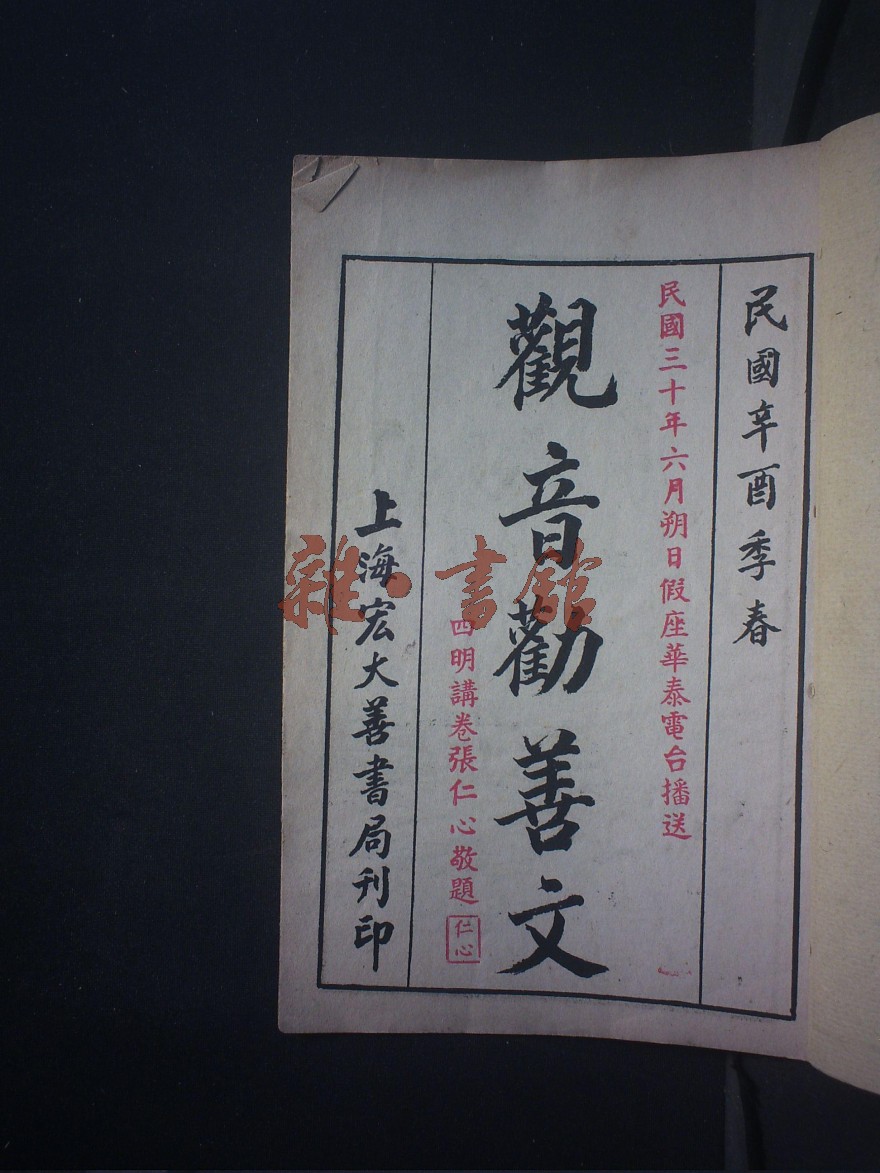 民國辛酉季春
民國三十年六月朔日假座華泰電台播送
觀音勸善文
四明講卷張仁心敬題
仁心
上海宏大善書局刊印
雜·書館